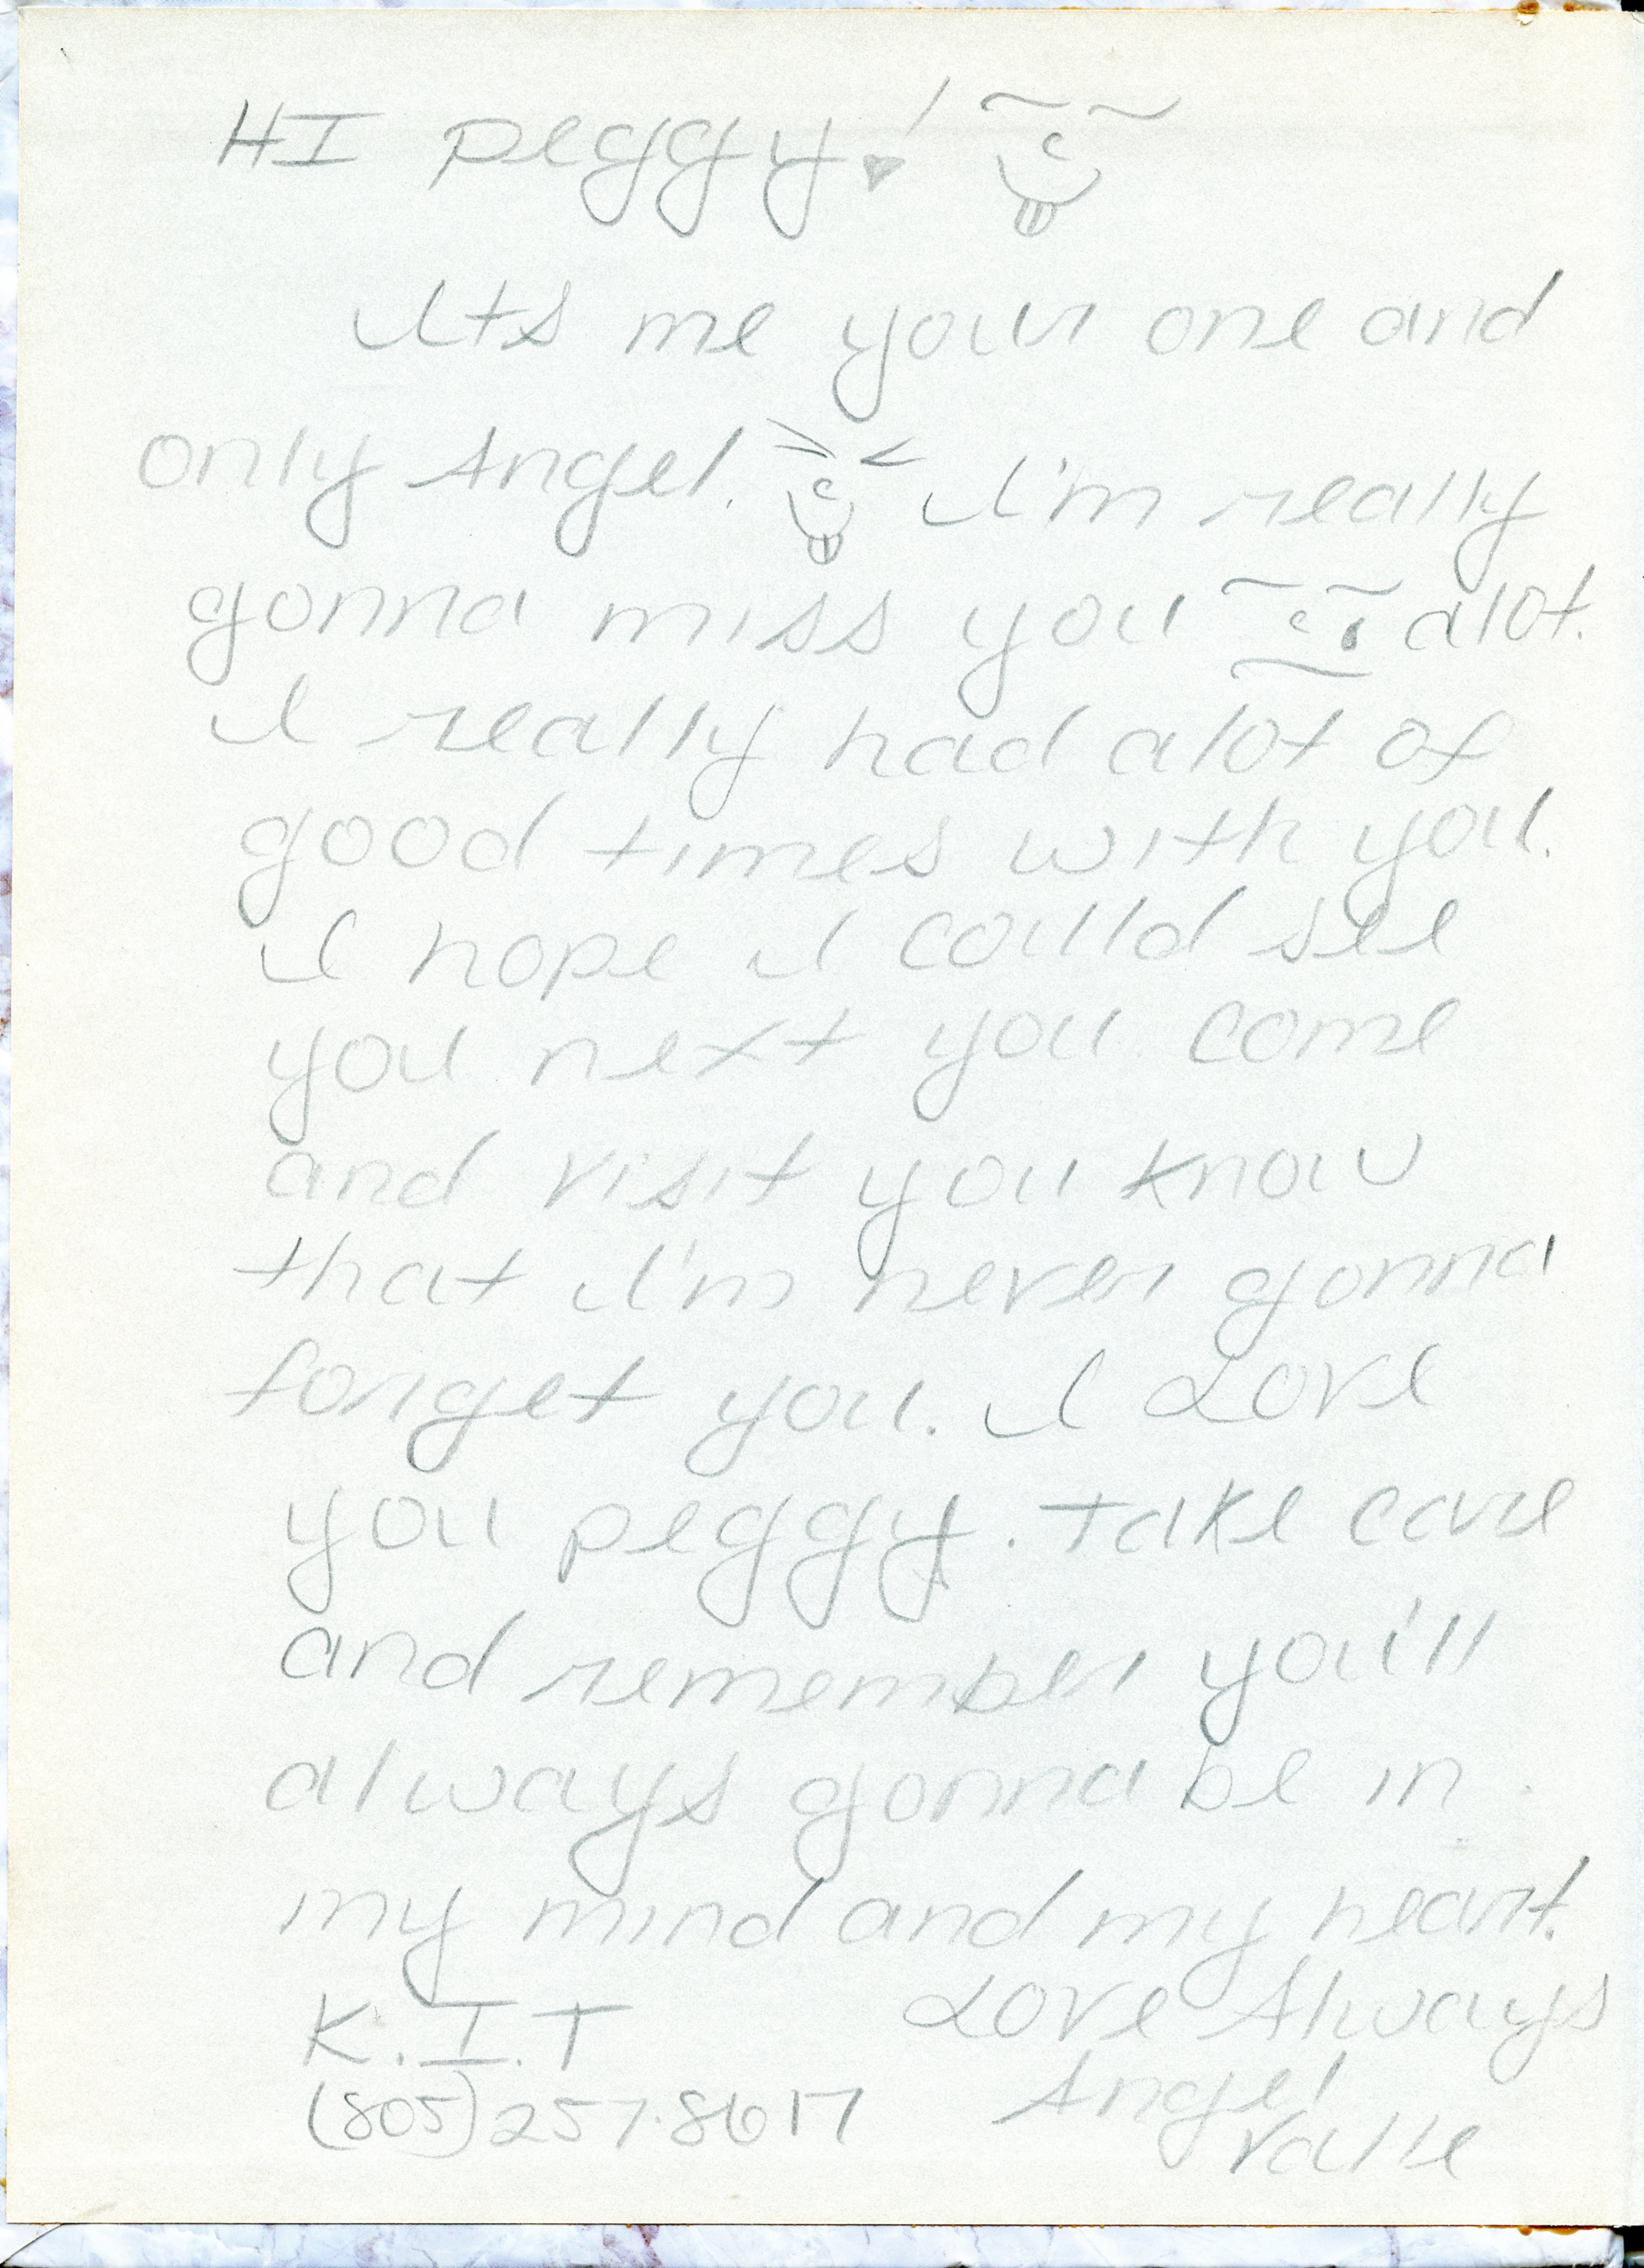 HI peggy!
Its me your one and
only Angel. I'm really
gonna miss you alot.
I really had alot of
good times with you.
I hope I could see
you next you come
and visit you know
that I'm never gonna
forget you. I Love
you peggy. take care
and remember you'll
always gonna be in
my mind and my heart.
K.I.T Love Always
(805) 257-8617 Angel
Valle